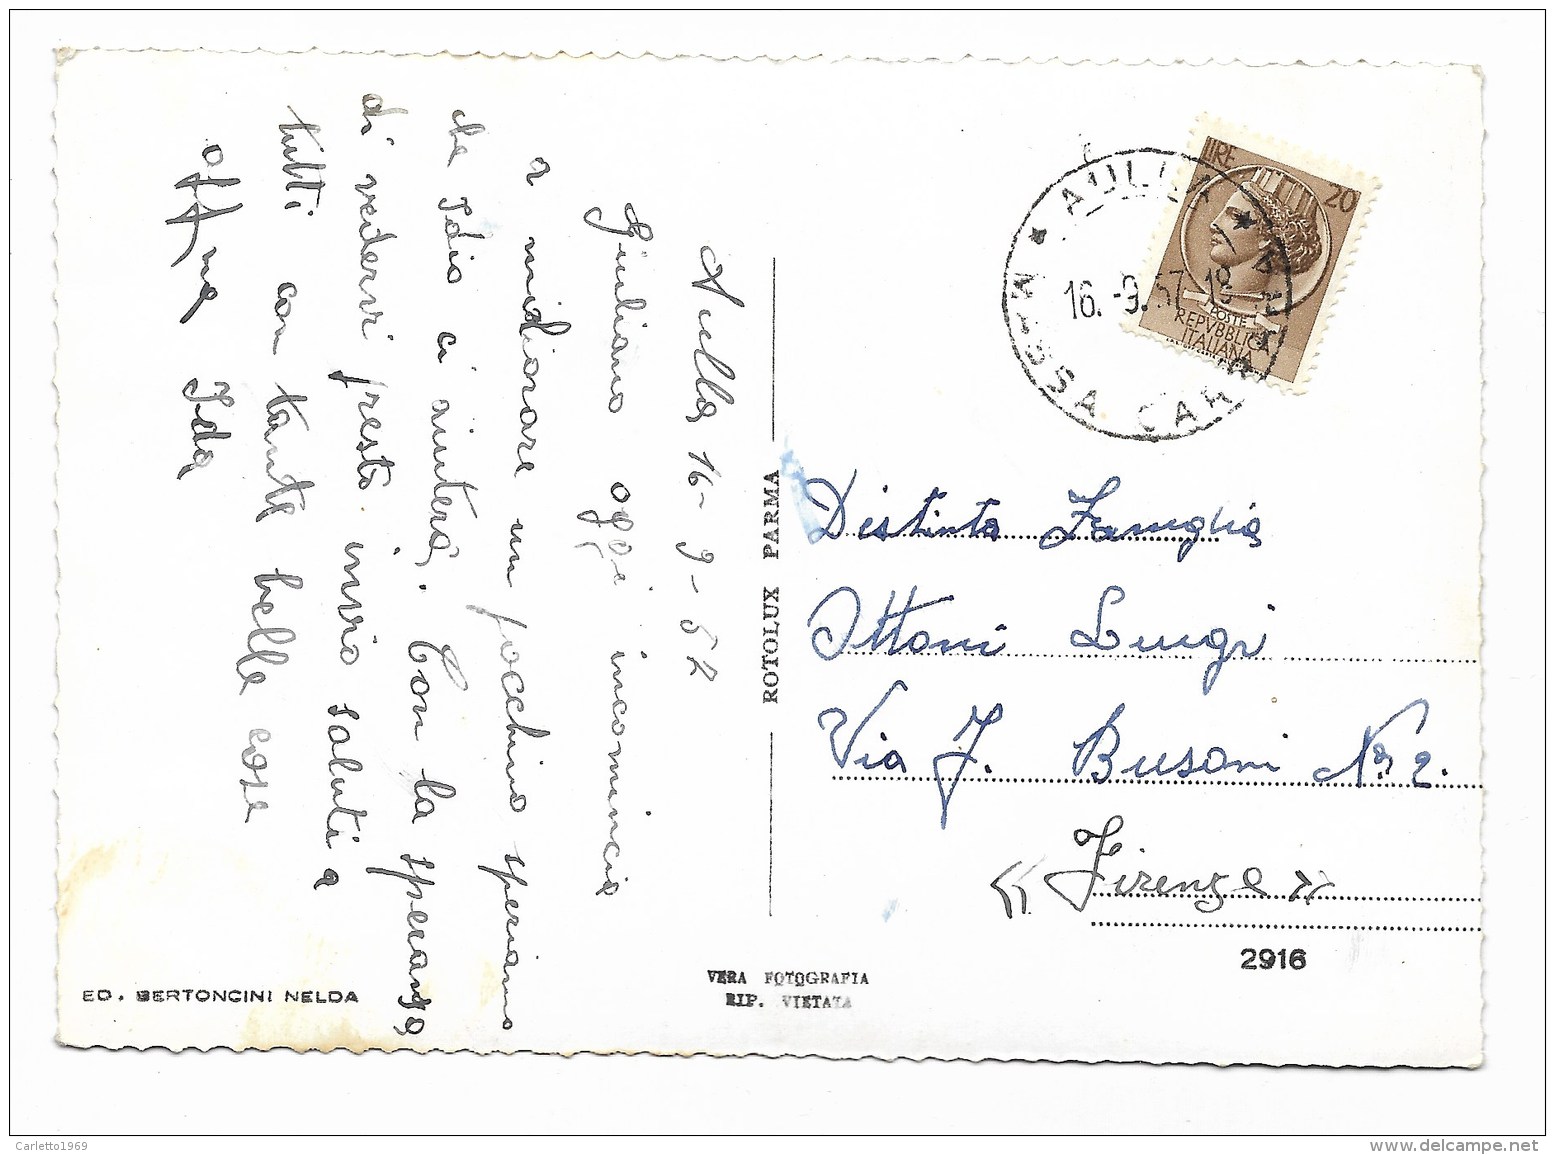 Aulla 16-9-57
Giuliano oggi incomincia
a migliorare un pocchino speriamo
che Idio ci aiuterà. Con la speranza
di vedervi presto invio saluti a
tutti con tante belle cose
aff/ma Ida
ROTOLUX PARMA
LIRE 20
POSTE
REPVBBLICA
ITALIANA
* AULLA *
16.-9.57.18
MASSA CARRARA
Distinta Famiglia
Ottoni Luigi
Via F. Busoni No 2.
« Firenze »
2916
VERA FOTOGRAFIA
RIP. VIETATA
ED. BERTONCINI NELDA
Carletto1969
www.delcampe.net